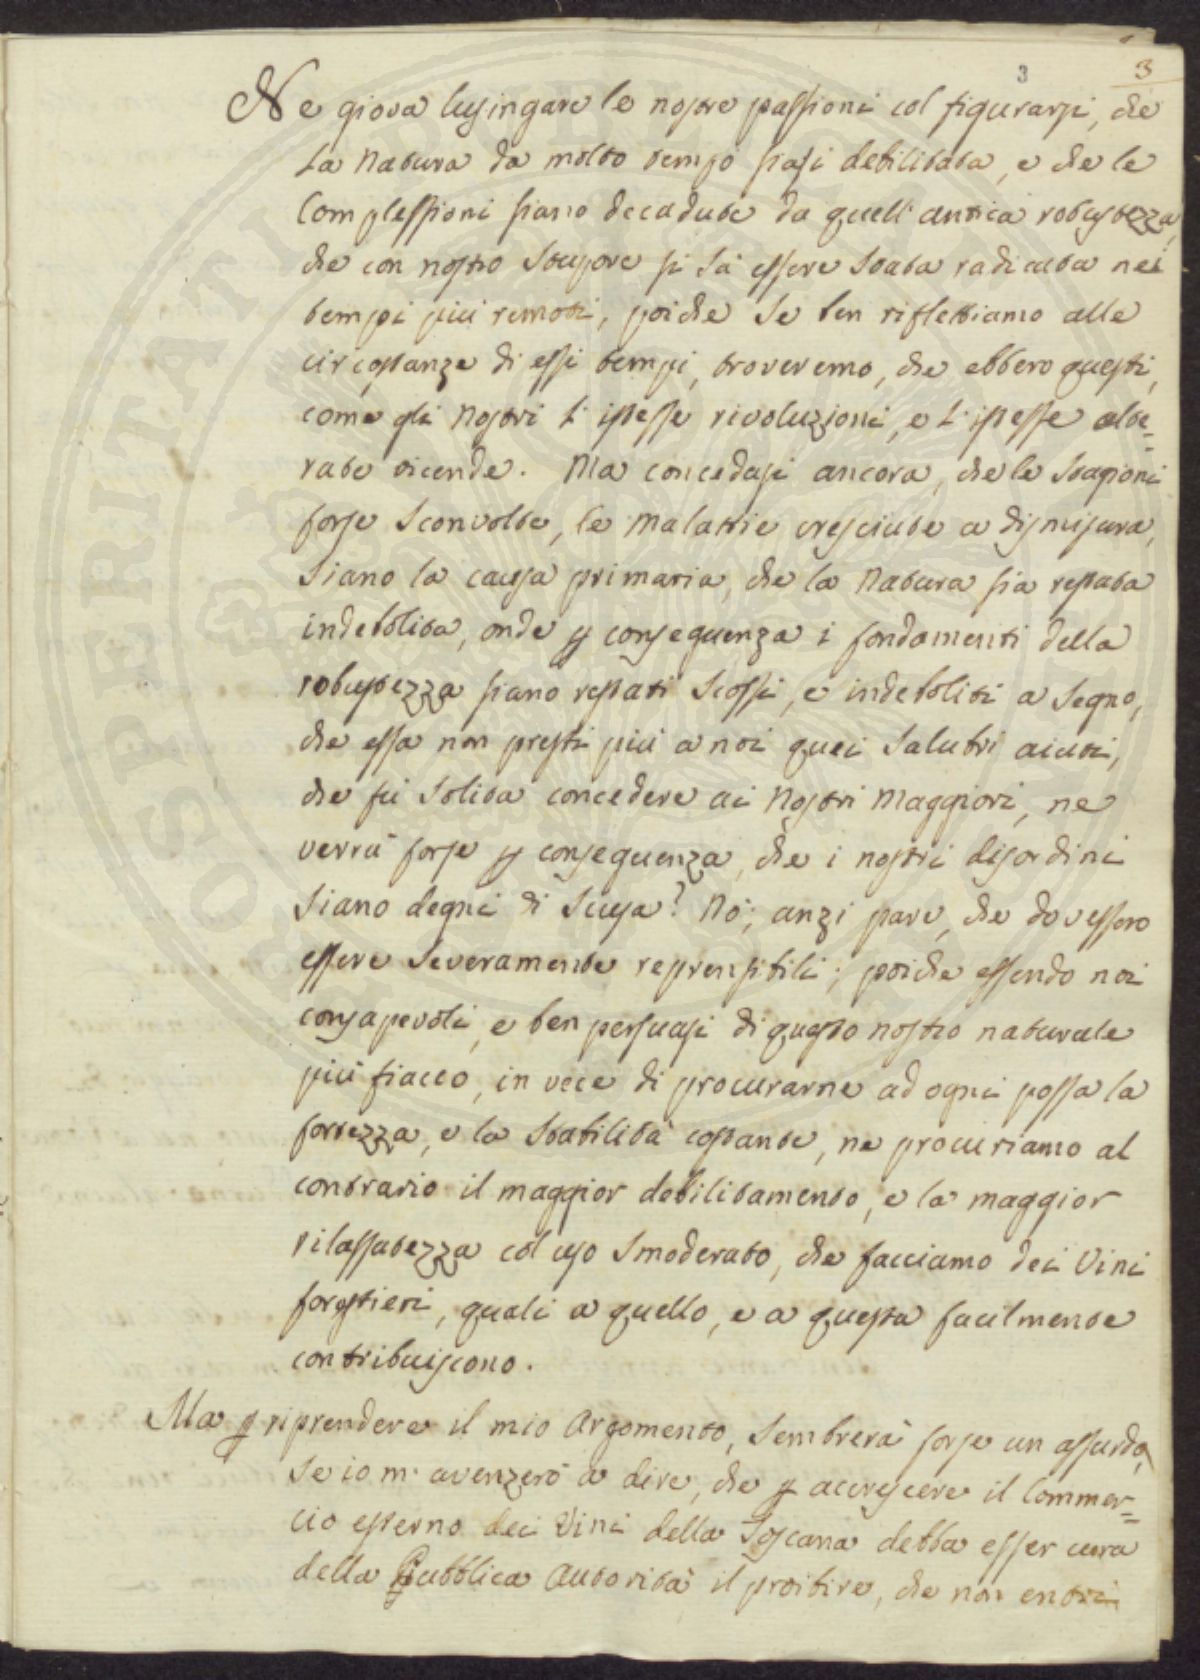 3 3
Ne giova lusingare le nostre passioni col figurarsi, che
la Natura da molto tempo siasi debilitata, e che le
Complessioni siano decadute da quell'antica robustezza,
che con nostro stupore si sà essere stata radicata nei
tempi più remoti, poiche se ben riflettiamo alle
circostanze di essi tempi, troveremo, che ebbero questi,
come gli Nostri l'istesse rivoluzioni, e l'istesse alte=
rate vicende. Ma concedasi ancora, che le Stagioni
forse sconvolte, le malattie cresciute a dismisura,
siano la causa primaria, che la Natura sia restata
indebolita, onde p conseguenza i fondamenti della
robustezza siano restati scossi, e indeboliti a segno,
che essa non presti più a noi quei salutri aiuti,
che fù solita concedere ai Nostri Maggiori, ne
verrà forse p conseguenza, che i nostri disordini
siano degni di scusa? Nò; anzi pare, che dovessero
essere severamente reprensibili; poiche essendo noi
consapevoli, e ben persuasi di questo nostro naturale
più fiacco, in vece di procurarne ad ogni possa la
fortezza, e la stabilità costante, ne procuriamo al
contrario il maggior debilitamento, e la maggior
rilassatezza col uso smoderato, che facciamo dei Vini
forestieri, quali a quello, e a questa facilmente
contribuiscono.
Ma p riprendere il mio Argomento, sembrerà forse un assurdo,
se io m'avenzerò a dire, che p accrescere il Commer=
cio esterno dei Vini della Toscana debba esser cura
della Pubblica Autorità il proibire, che non entri
SPERITATI PUBLICAE